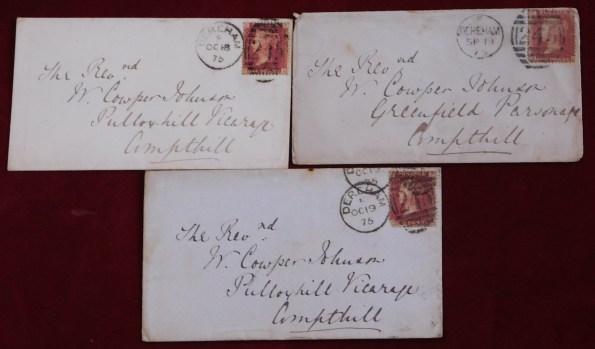 DEREHAM
OC 18
75
The Revnd
W. Cowper Johnson
Pulloxhill Vicarage
Ampthill
DEREHAM
SP
The Revnd
W. Cowper Johnson
Greenfield Parsonage
Ampthill
OC 19
DEREHAM
OC 19
75
The Revnd
W. Cowper Johnson
Pulloxhill Vicarage
Ampthill